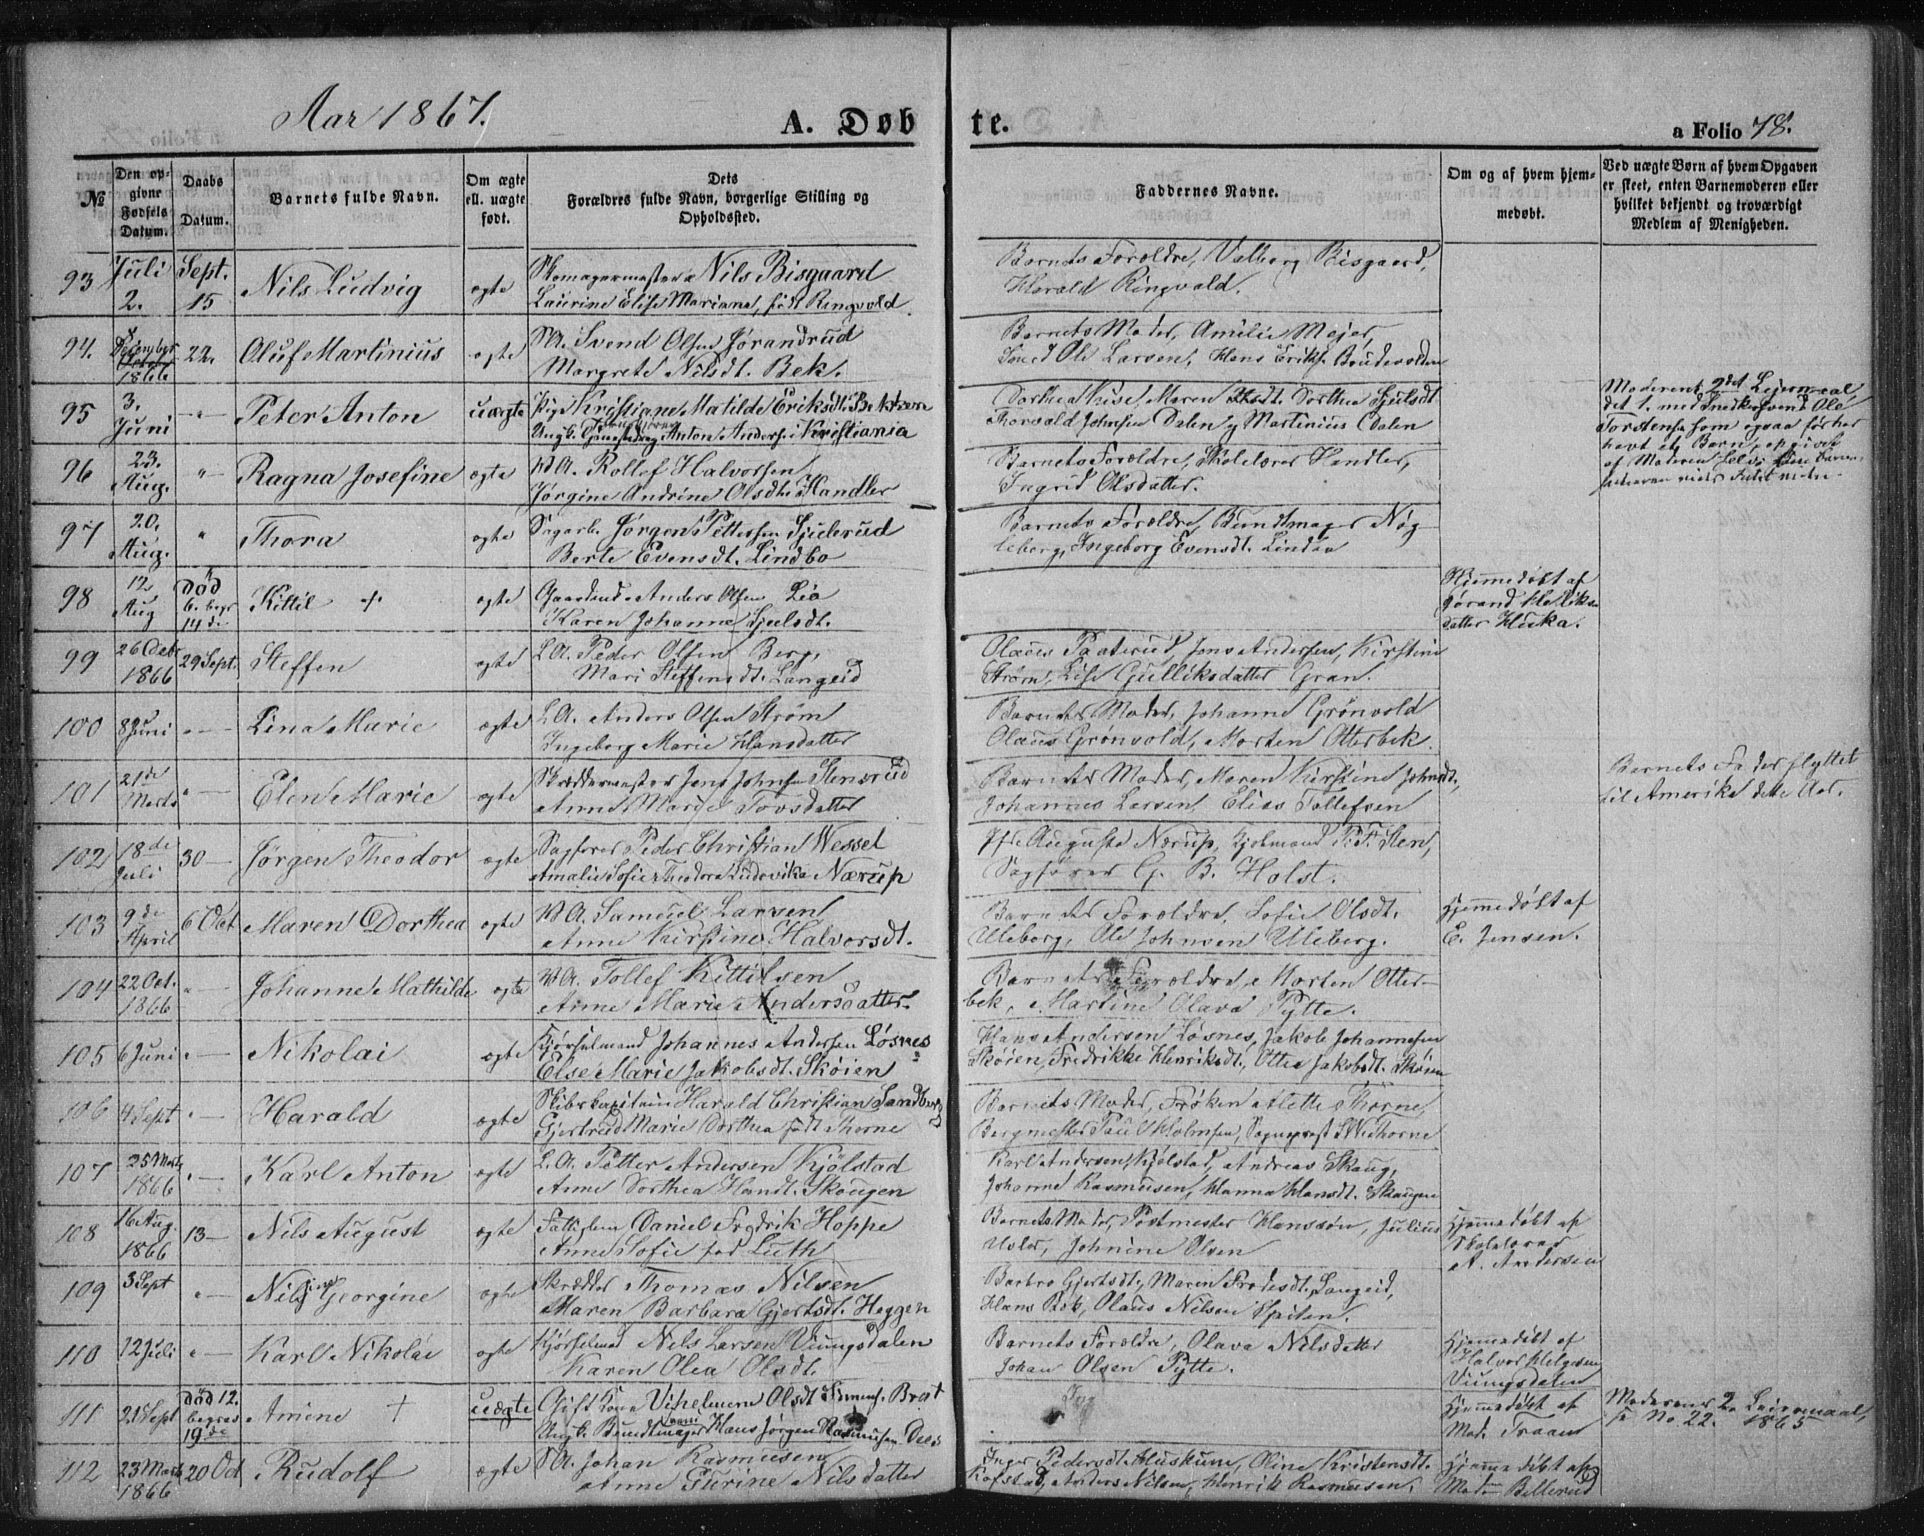 Aar 1867.
A. Døbte.
a Folio 78.
№
Den opgivne Fødsels Datum.
Daabs Datum.
Barnets fulde Navn.
Om ægte ell. uægte født.
Dets Forældres fulde Navn, borgerlige Stilling og Opholdssted.
Faddernes Navne.
Om og af hvem hjemmedøbt.
Ved uægte Børn af hvem Opgaven er skeet, enten Barnemoderen eller hvilket bekjendt og troværdigt Medlem af Menigheden.
93 Juli 2. Sept. 15 Nils Ludvig ægte Skomagermester Nils Bisgaard
Laurine Elise Mariane, født Ringvold.
Barnets Forældre, Valborg Bisgaard,
Harald Ringvold.
94. December 1866 22. Oluf Martinius ægte Svend Olsen Jørandrud
Margrete Nilsdt. Bek.
Barnets Moder, Amilie Mejer,
Ole Larsen, Hans Eriks.
95 3. Juni " Peter Anton uægte Pige Kristiane Matilde Eriksdt. Bekken
Ungk. Anton Anders. i Kristiania
Dorthea Maren Dorthea Gjulsdt
Thorvald Johnsen Dalen, Martinius Dalen
Moderens 2det Leiermaal,
det 1. med Snedkersvend Ole
Torstensen som ogsaa før har
havt et Barn, opgivet
af Moderen selv,
96 23. Aug. " Ragna Josefine ægte Rollef Halvorsen
Jørgine Andrine Olsdt. Handler
Barnets Forældre, Skolelærer Handler,
Ingrid Olsdatter.
97 20. Aug. " Thora ægte Sagarb. Jørgen Pettersen Gjulerud
Berte Evensdt. Lindbo
Barnets Forældre, Bundtmager Nøg-
leberg, Ingeborg Evensdt. Lindbo
98 12 Aug død 6. begr 14 d. Kittil + ægte Gaardmd. Anders Olsen Lia
Karen Johanne Gjulsdt.
Hjemmedøbt af
Gjørand
datter Huka.
99 26 Decbr 1866 29 Sept. Steffen ægte L.A. Peder Olsen Berg,
Mari Steffensdt. Langeid
Olaus Paaterud, Jens Andersen, Kirstine
Strøm, Lise Gulliksdatter Gran.
100 8 Juni " Lina Marie ægte L.A. Anders Olsen Strøm
Ingeborg Marie Hansdatter
Barnets Moder, Johanne Grønvold
Olaus Grønvold, Morten Otterbek.
101 21de Marts " Elen Marie ægte Skræddermester Jens Johnsen Stensrud
Anne Marie Tovsdatter
Barnets Moder, Maren Kirstine Johnsdt.,
Johannes Larsen, Elias Tollefsen
Barnets Fader flyttet
til Amerika dette Aar.
102 18de Juli 30 Jørgen Theodor ægte Sagfører Peder Christian Wessel
Amalie Sofie Theodora Ludovika Nærup
Auguste Nærup, Kjøbmand P. F. Steen,
Sagfører G. B. Holst.
103 9de April 6 Oct Maren Dorthea ægte Samuel Larsen
Anne Kirstine Halvorsdt.
Barnets Forældre, Sofie Olsdt.
Uleberg, Ole Johnsen Uleberg.
Hjemmedøbt af
E. Jensen.
104 22 Oct. 1866 " Johanne Mathilde ægte Tollef Kittilsen
Anne Marie Andersdatter
Barnets Forældre, Morten Otter-
bek, Martine Olava Pytte.
105 6 Juni " Nikolai ægte Kjørselmand Johannes Andersen Løsnes
Else Marie Jakobsdt. Skøien
Hans Andersen Løsnes, Jakob Johannesen
Skøien, Fredrikke Henriksdt., Ottea Jakobsdt. Skøien
106 4 Sept " Harald ægte Skibskapitain Harald Christian Sandberg
Gjertrud Marie Dorthea født Thorne
Barnets Moder, Frøken Alette Thorne,
Bergmester Poul Holmsen, Sogneprest Thorne
107 25 Marts 1866 " Karl Anton ægte L.A. Petter Andersen Kjølstad
Anne Dorthea Hansdt. Skougen
Karl Andersen Kjølstad, Andreas Skaug,
Johanne Rasmusen, Hanna Hansdt. Skaugen
108 16 Aug. 1866 13 Nils August ægte Fattiglem Daniel Fredrik Hoppe
Anne Sofie fød Luth
Barnets Moder, Postmester Hanssøn, Julius
Johnine Olsen
Hjemmedøbt af
Skolelærer
A. Andersen
109 3 Sept " Nilsine Georgine ægte Skrædder Thomas Nilsen
Maren Barbara Gjertsdt. Heggen
Barbro Gjertsdt., Maren Frodesdt. Langeid,
Hans Bek, Olaus Nilsen Spiten.
110 12 Juli " Karl Nikolai ægte Kjørselmd. Nils Larsen Viungsdalen
Karen Olea Olsdt.
Barnets Forældre, Olava Nilsdatter
Johan Olsen Pytte.
Hjemmedøbt af
Halvor Helgesen
Viungsdalen
111 21 Sept død 12. begrav. 19de Amine + uægte Gift Kone Vilhelmine Olsdt
Ungk. Bundtmager Hans Jørgen Rasmusen
Hjemmedøbt af
Mad. Traaen
Moderens 2. Leiermaal,
se No. 22. 1865
112 23 Marts 1866 20 Oct Rudolf ægte Johan Rasmusen
Anne Turine Nilsdatter
Inger Pedersdt. Oline Kristensdt.
Kofstad, Anders Nilsen, Henrik Rasmusen.
Hjemmedøbt af
Mad. Billerud